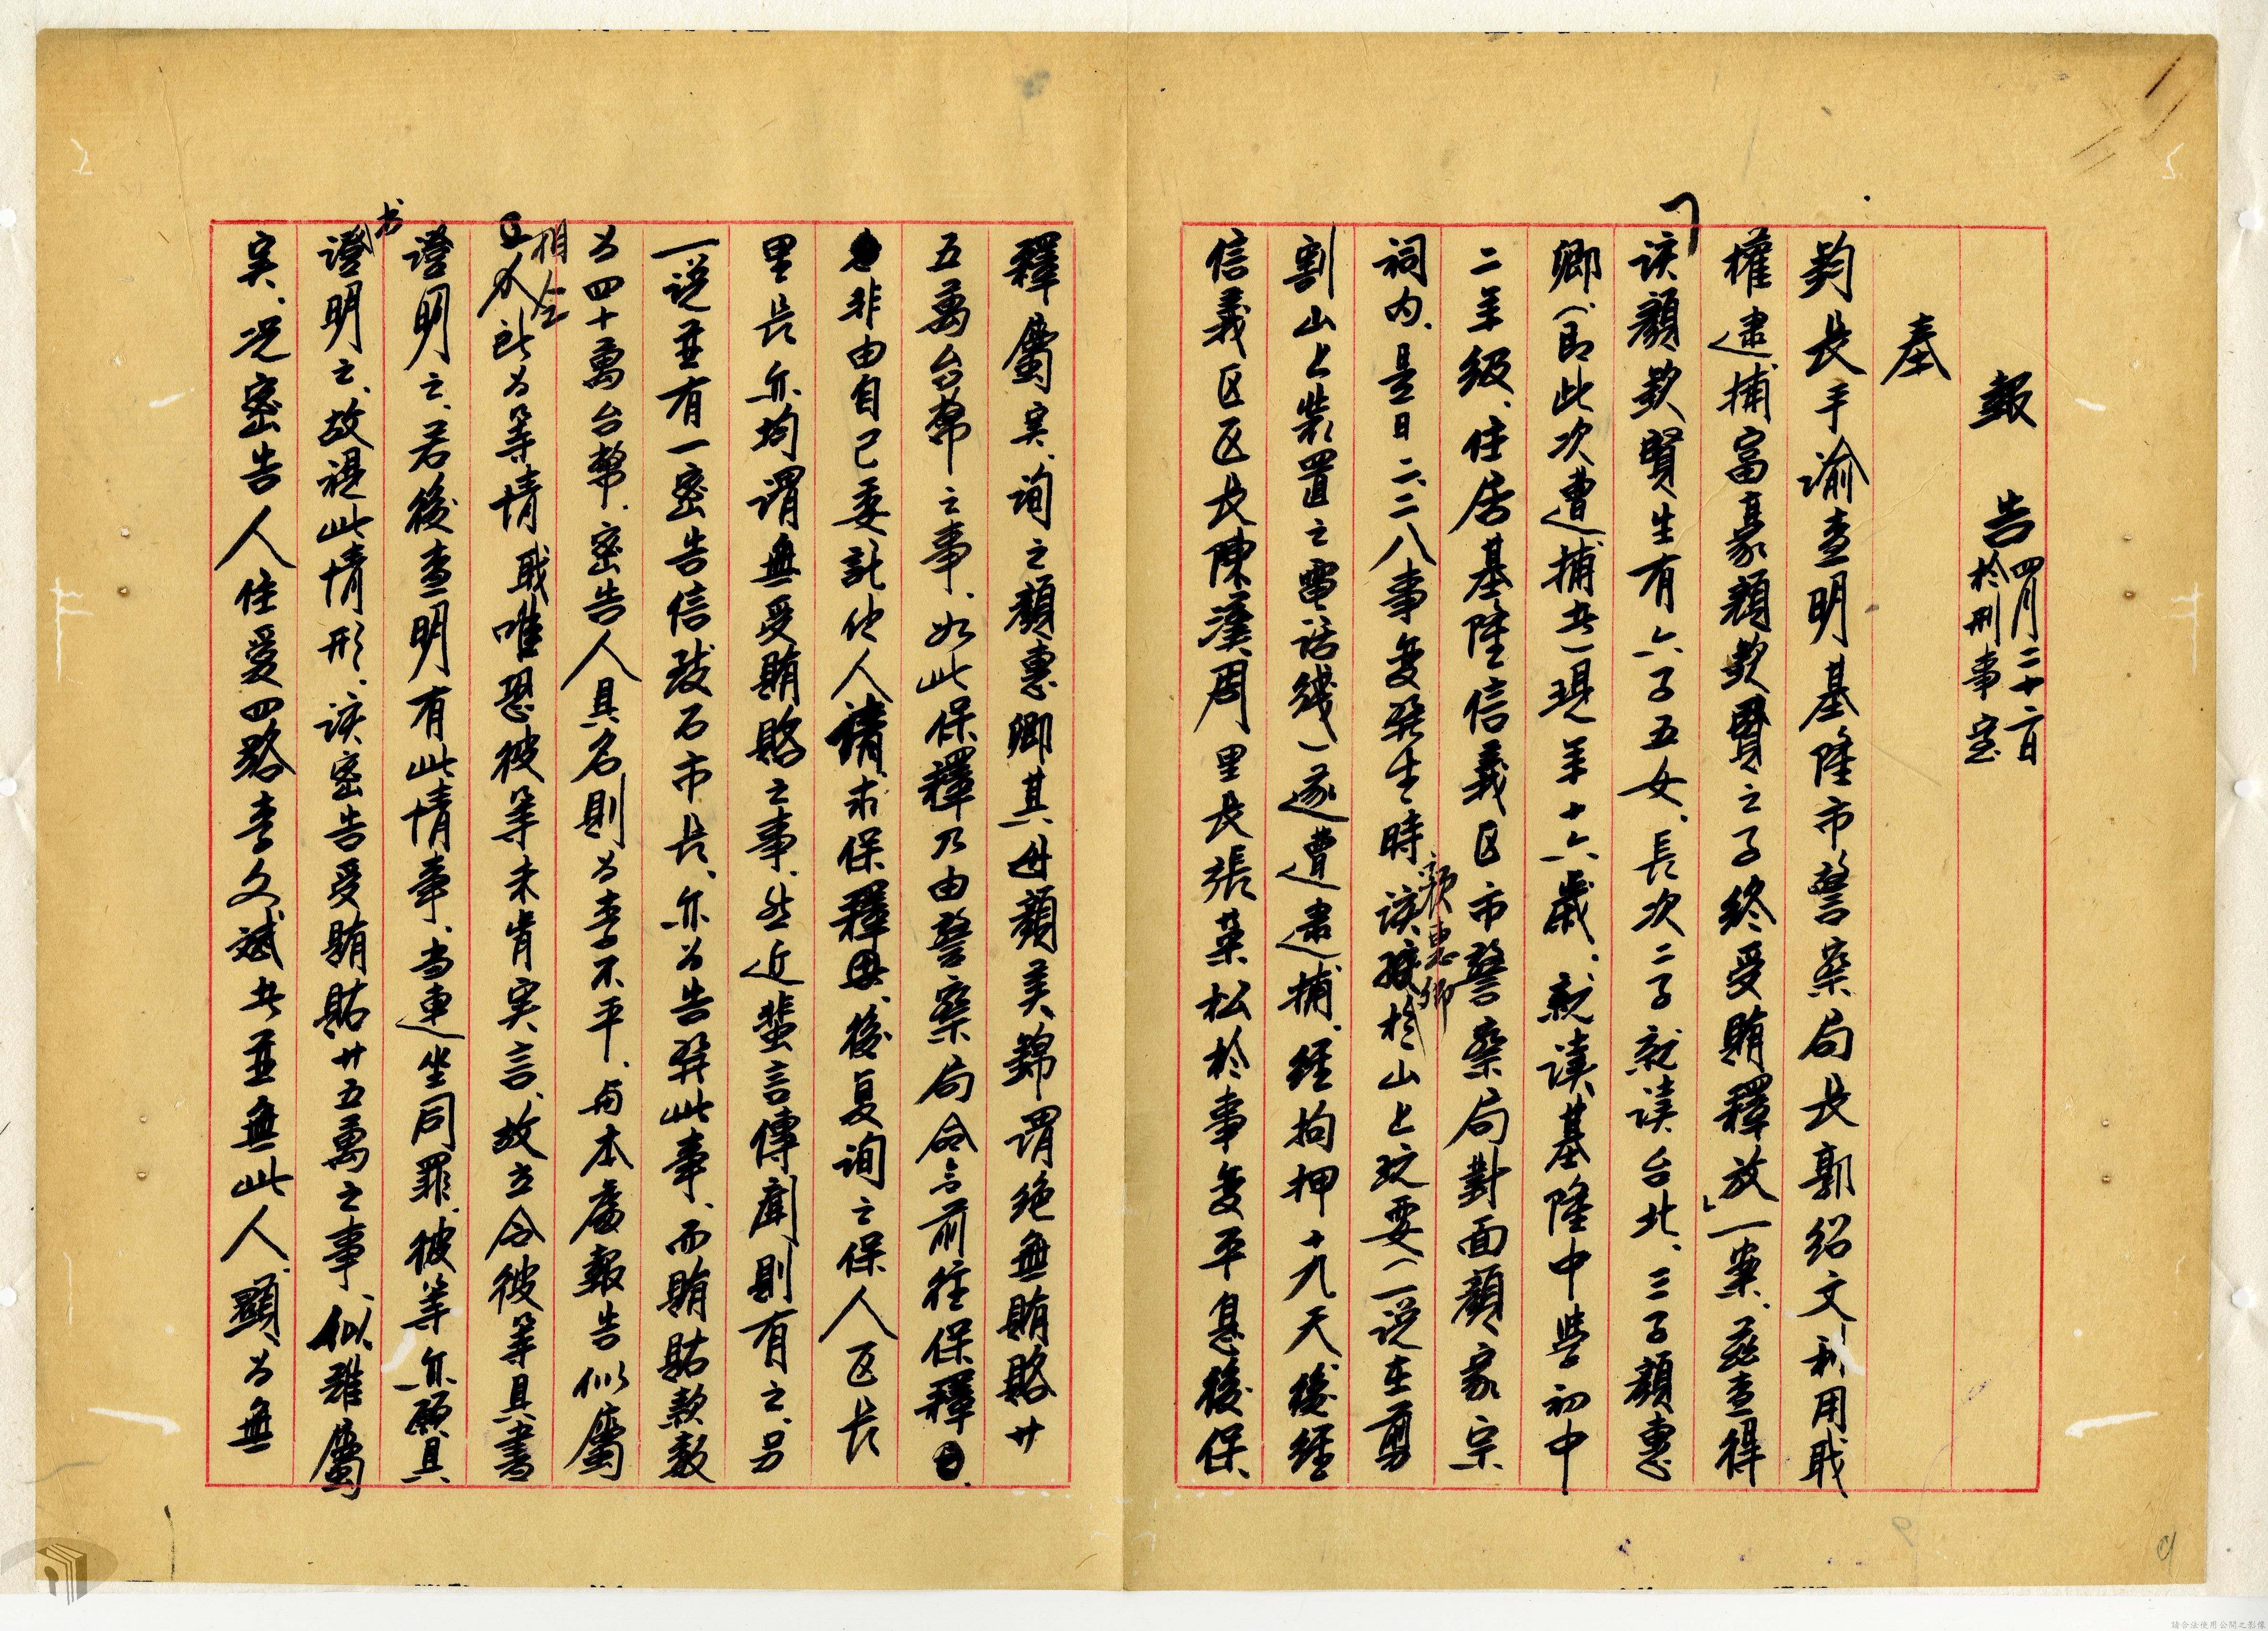 報告 四月二十二日
於刑事室
奉
鈞長手諭查明基隆市警察局長郭紹文利用職
權逮捕富豪顏欽賢之子終受賄釋放」一案、茲查得
「該顏欽賢生有六子五女、長次二子就读台北、三子顏惠
卿（即此次遭捕者）現年十六歲、就讀基隆中學初中
二年級、住居基隆信義区市警察局對面顏家宗
祠內、是日二、二八事变發生時、該孩於山上玩耍（一说在剪
顏惠卿
割山上裝置之電話线）遂遭逮捕、經拘押十九天後經
信義区区長陳漢周里長張菜松於事变平息後保
釋屬实、詢之顏惠卿其母顏美錦謂絕無賄賂廿
五萬台幣之事、如此保釋乃由警察局令前往保釋
非由自己委託他人請求保釋、後复詢之保人区長
里長亦均謂無受賄賂之事、然近蜚言傳聞則有之、另
一说並有一密告信致石市長、亦为告發此事、而賄賂款数
为四十萬台幣、密告人具名則为李不平、与本處報告似屬
相仝
此为等情職唯恐彼等未肯实言、故立令彼等具書
證明之、若後查明有此情事、当連坐同罪、彼等亦願具
书
證明之、故視此情形、該密告受賄賂廿五萬之事、似難屬
实、况密告人住爱四路李文斌者並無此人、顯为無
請合法使用公開之影像